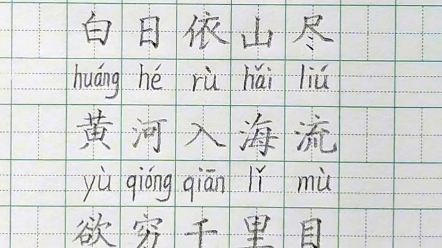 白日依山尽
huáng hé rù hǎi liú
黄河入海流
yù qióng qiān lǐ mù
欲穷千里目